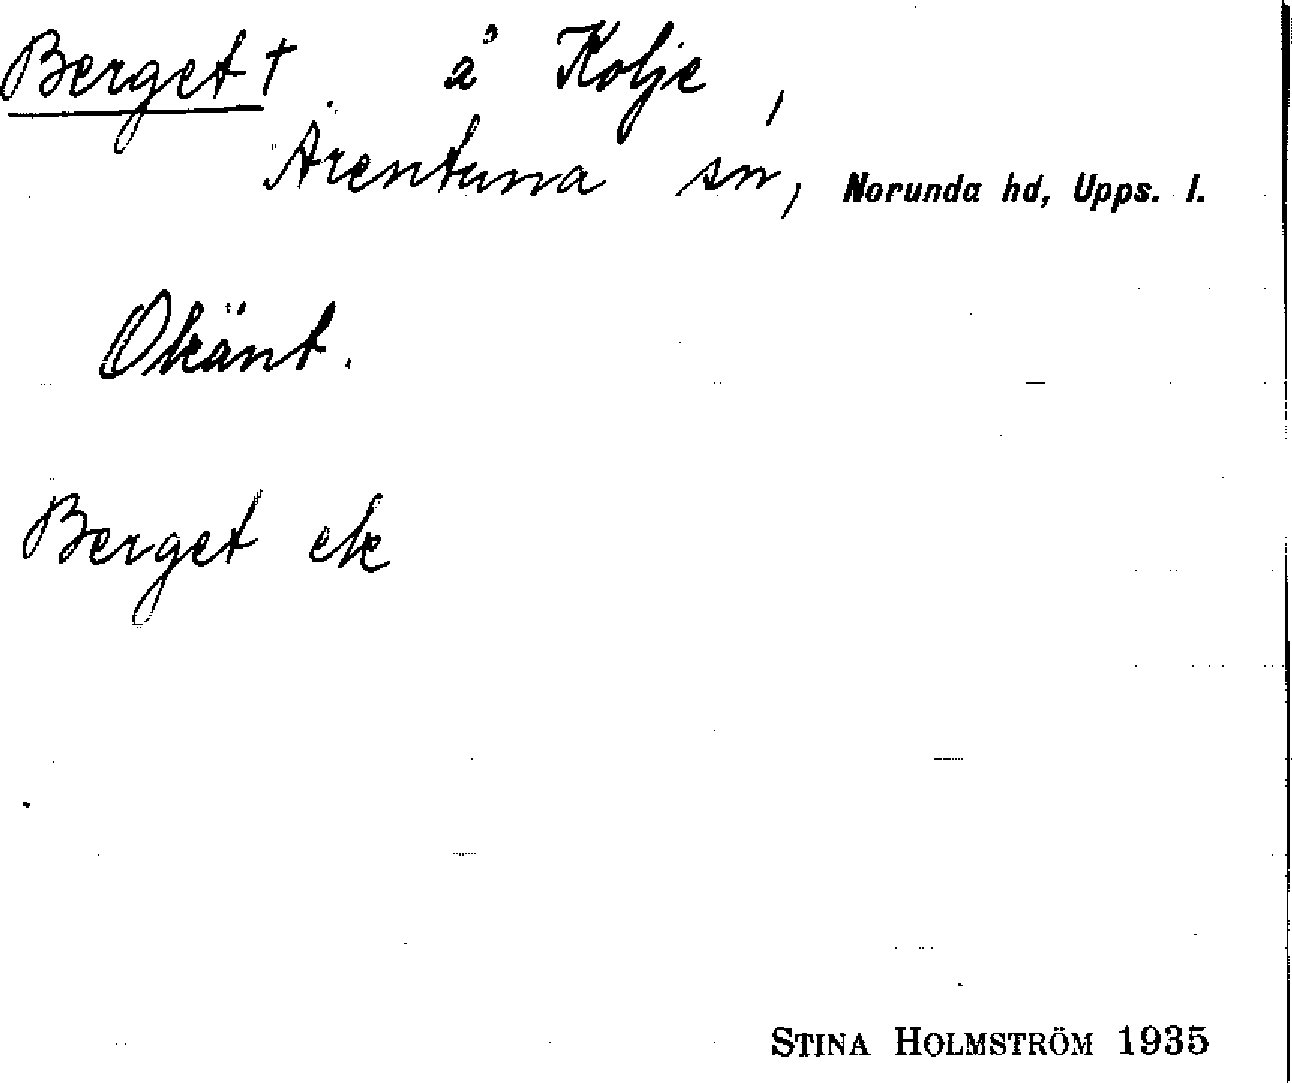 Berget † å Kolje,
Ärentuna sn, Norunda hd, Upps. l.
Okänt.
Berget ek
STINA HOLMSTRÖM 1935